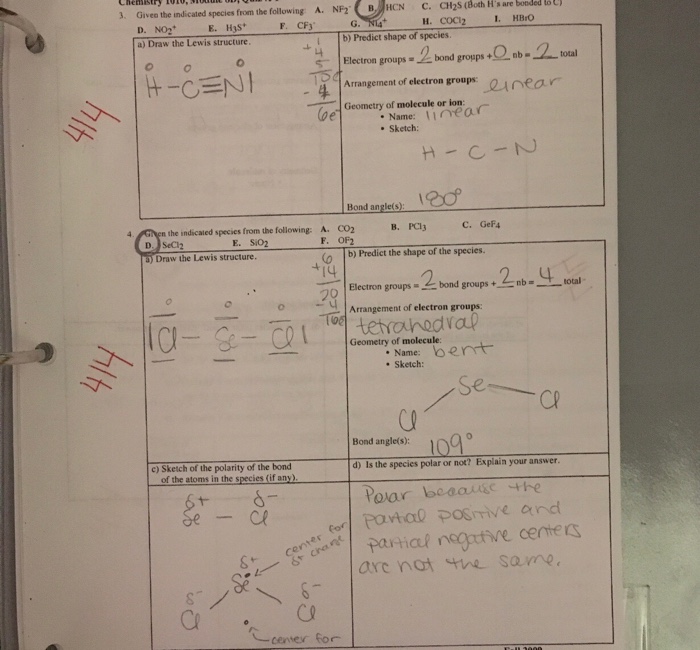 3. Given the indicated species from the following: A. NF2 B. HCN C. CH2S (Both H's are bonded to C)
D. NO2+ E. H3S+ F. CF3 G. H. COCl2 I. HBrO
a) Draw the Lewis structure.
b) Predict shape of species.
H-C≡N|
+1
4
5
10e
-4
6e
Electron groups = 2 bond groups + 0 nb = 2 total
Arrangement of electron groups: linear
Geometry of molecule or ion:
• Name: linear
• Sketch:
H - C - N
Bond angle(s): 180°
4/4
4. Given the indicated species from the following: A. CO2 B. PCl3 C. GeF4
D. SeCl2 E. SiO2 F. OF2
a) Draw the Lewis structure.
b) Predict the shape of the species.
6
+14
20
-4
16e
|Cl - Se - Cl|
Electron groups = 2 bond groups + 2 nb = 4 total
Arrangement of electron groups:
tetrahedral
Geometry of molecule:
• Name: bent
• Sketch:
Se
Cl Cl
Bond angle(s): 109°
4/4
c) Sketch of the polarity of the bond
of the atoms in the species (if any).
d) Is the species polar or not? Explain your answer.
δ+ δ-
Se - Cl
center for
δ+ charge
δ+
Se
δ- δ-
Cl Cl
center for
Polar because the
partial positive and
partial negative centers
are not the same.